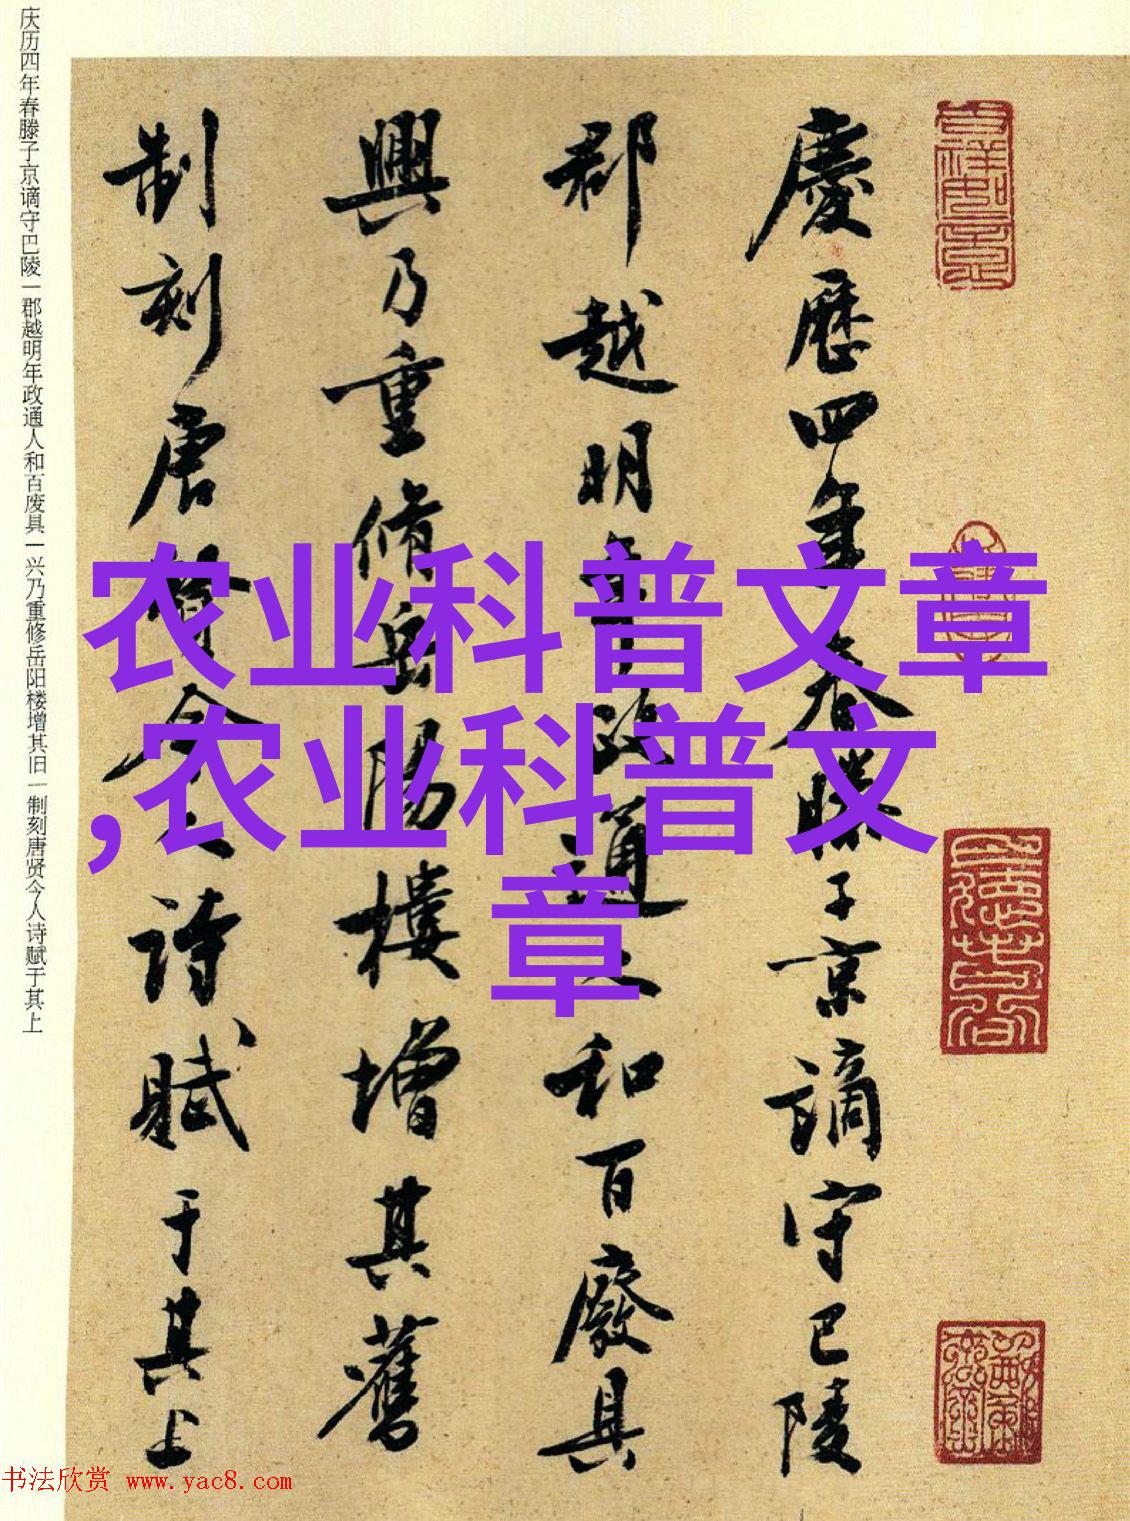 慶歷四年春滕子京謫守巴陵
郡越明年政通人和百廢具
興乃重修岳陽樓增其舊
制刻唐賢今人詩賦于其上
庆历四年春滕子京谪守巴陵一郡越明年政通人和百废具一兴乃重修岳阳楼增其旧一制刻唐贤今人诗赋于其上
农业科普文章
,农业科普文
章
书法欣赏 www.yac8.com